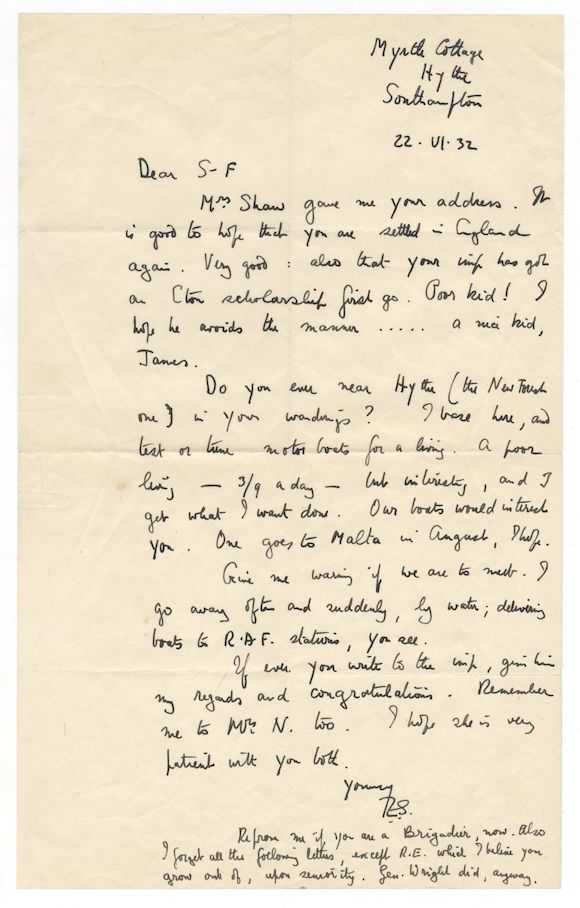 Myrtle Cottage
Hythe
Southampton
22.VI.32
Dear S-F
Mrs Shaw gave me your address. It
is good to hope that you are settled in England
again. Very good: also that your imp has got
an Eton scholarship first go. Poor kid! I
hope he avoids the manner ..... a nice kid,
James.
Do you ever near Hythe (the New Forest
one) in your wanderings? I base here, and
test or tune motor boats for a living. A poor
living — 3/9 a day — but interesting, and I
get what I want done. Our boats would interest
you. One goes to Malta in August, I hope.
Give me warning if we are to meet. I
go away often and suddenly, by water; delivering
boats to R.A.F. stations, you see.
If ever you write to the imp, give him
my regards and congratulations. Remember
me to Mrs N. too. I hope she is very
patient with you both.
Yours
TES.
me if you are a Brigadier, now. Also
I forget all the following letters, except R.E. which I believe you
grow out of, upon seniority. Gen. Wright did, anyway.